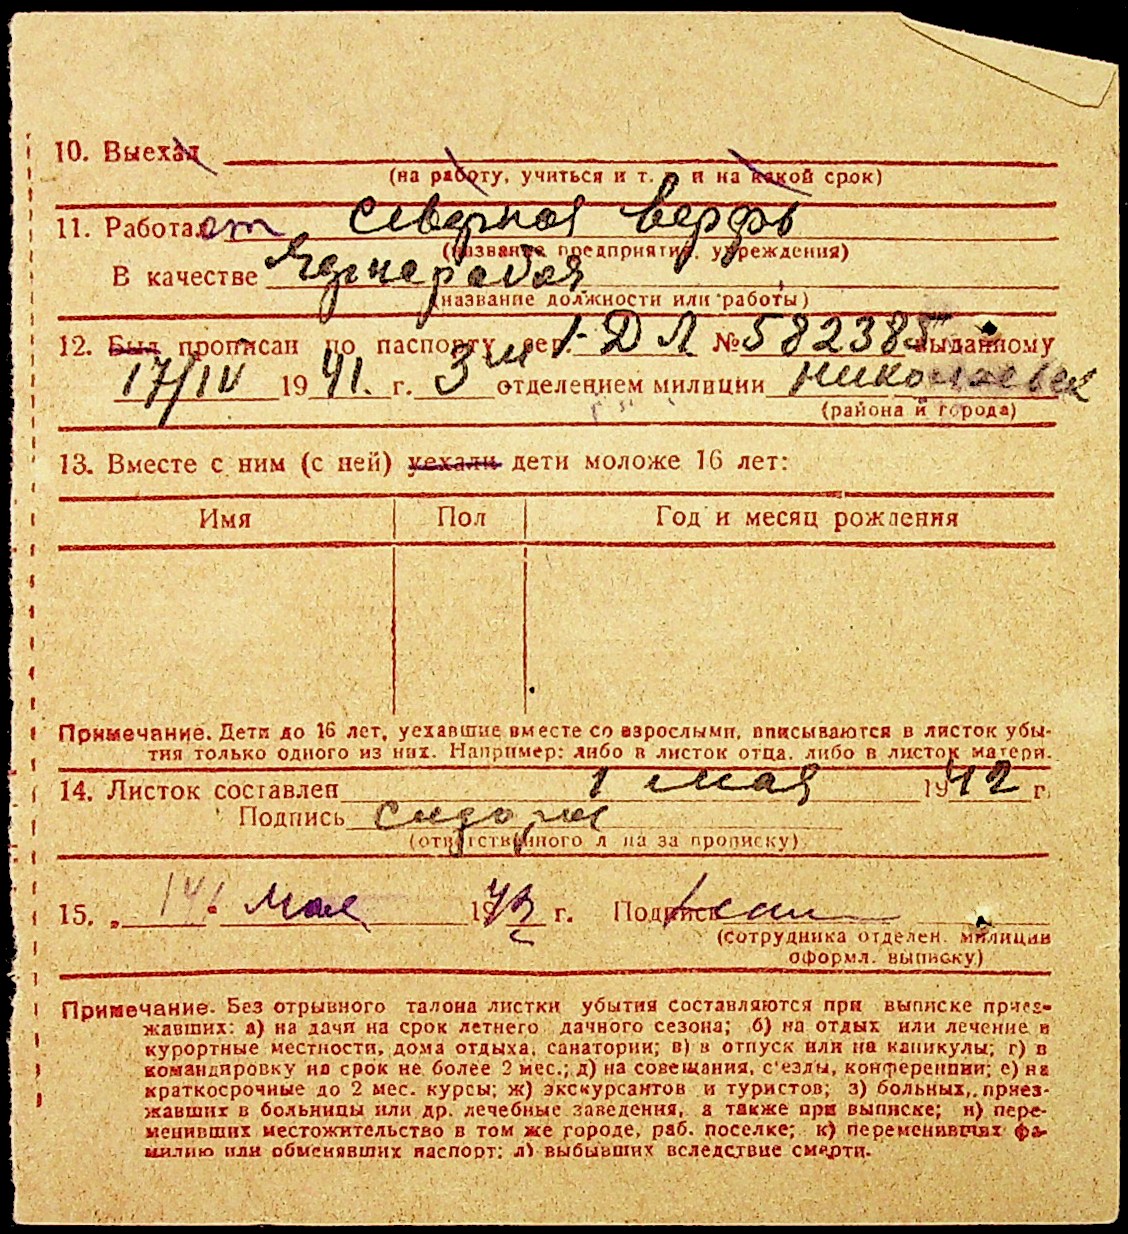 10. Выехал
(на работу, учиться и т. п. и на какой срок)
11. Работает Северная верфь
(название предприятия, учреждения)
В качестве Чернорабоч
(название должности или работы)
12. Был прописан по паспорту сер. 1-ДЛ № 582385 выданному
17/IV 1941. г. 3м отделением милиции Николаевск
(района и города)
13. Вместе с ним (с ней) уехали дети моложе 16 лет:
Имя Пол Год и месяц рождения
Примечание. Дети до 16 лет, уехавшие вместе со взрослыми, вписываются в листок убы-
тия только одного из них. Например: либо в листок отца, либо в листок матери.
14. Листок составлен 1 мая 1942 г.
Подпись
(ответственного л на за прописку)
15. „14“ мая 1942 г. Подпись
(сотрудника отделен. милиции
оформл. выписку)
Примечание. Без отрывного талона листки убытия составляются при выписке приез-
жавших: а) на дачи на срок летнего дачного сезона; б) на отдых или лечение в
курортные местности, дома отдыха, санатории; в) в отпуск или на каникулы; г) в
командировку на срок не более 2 мес.; д) на совещания, с'езды, конференции; е) на
краткосрочные до 2 мес. курсы; ж) экскурсантов и туристов; з) больных, приез-
жавших в больницы или др. лечебные заведения, а также при выписке; и) пере-
менивших местожительство в том же городе, раб. поселке; к) переменивших фа-
милию или обменявших паспорт; л) выбывших вследствие смерти.